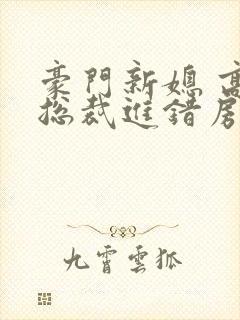 豪門新媳 高
總裁進錯房
九霄雲狐